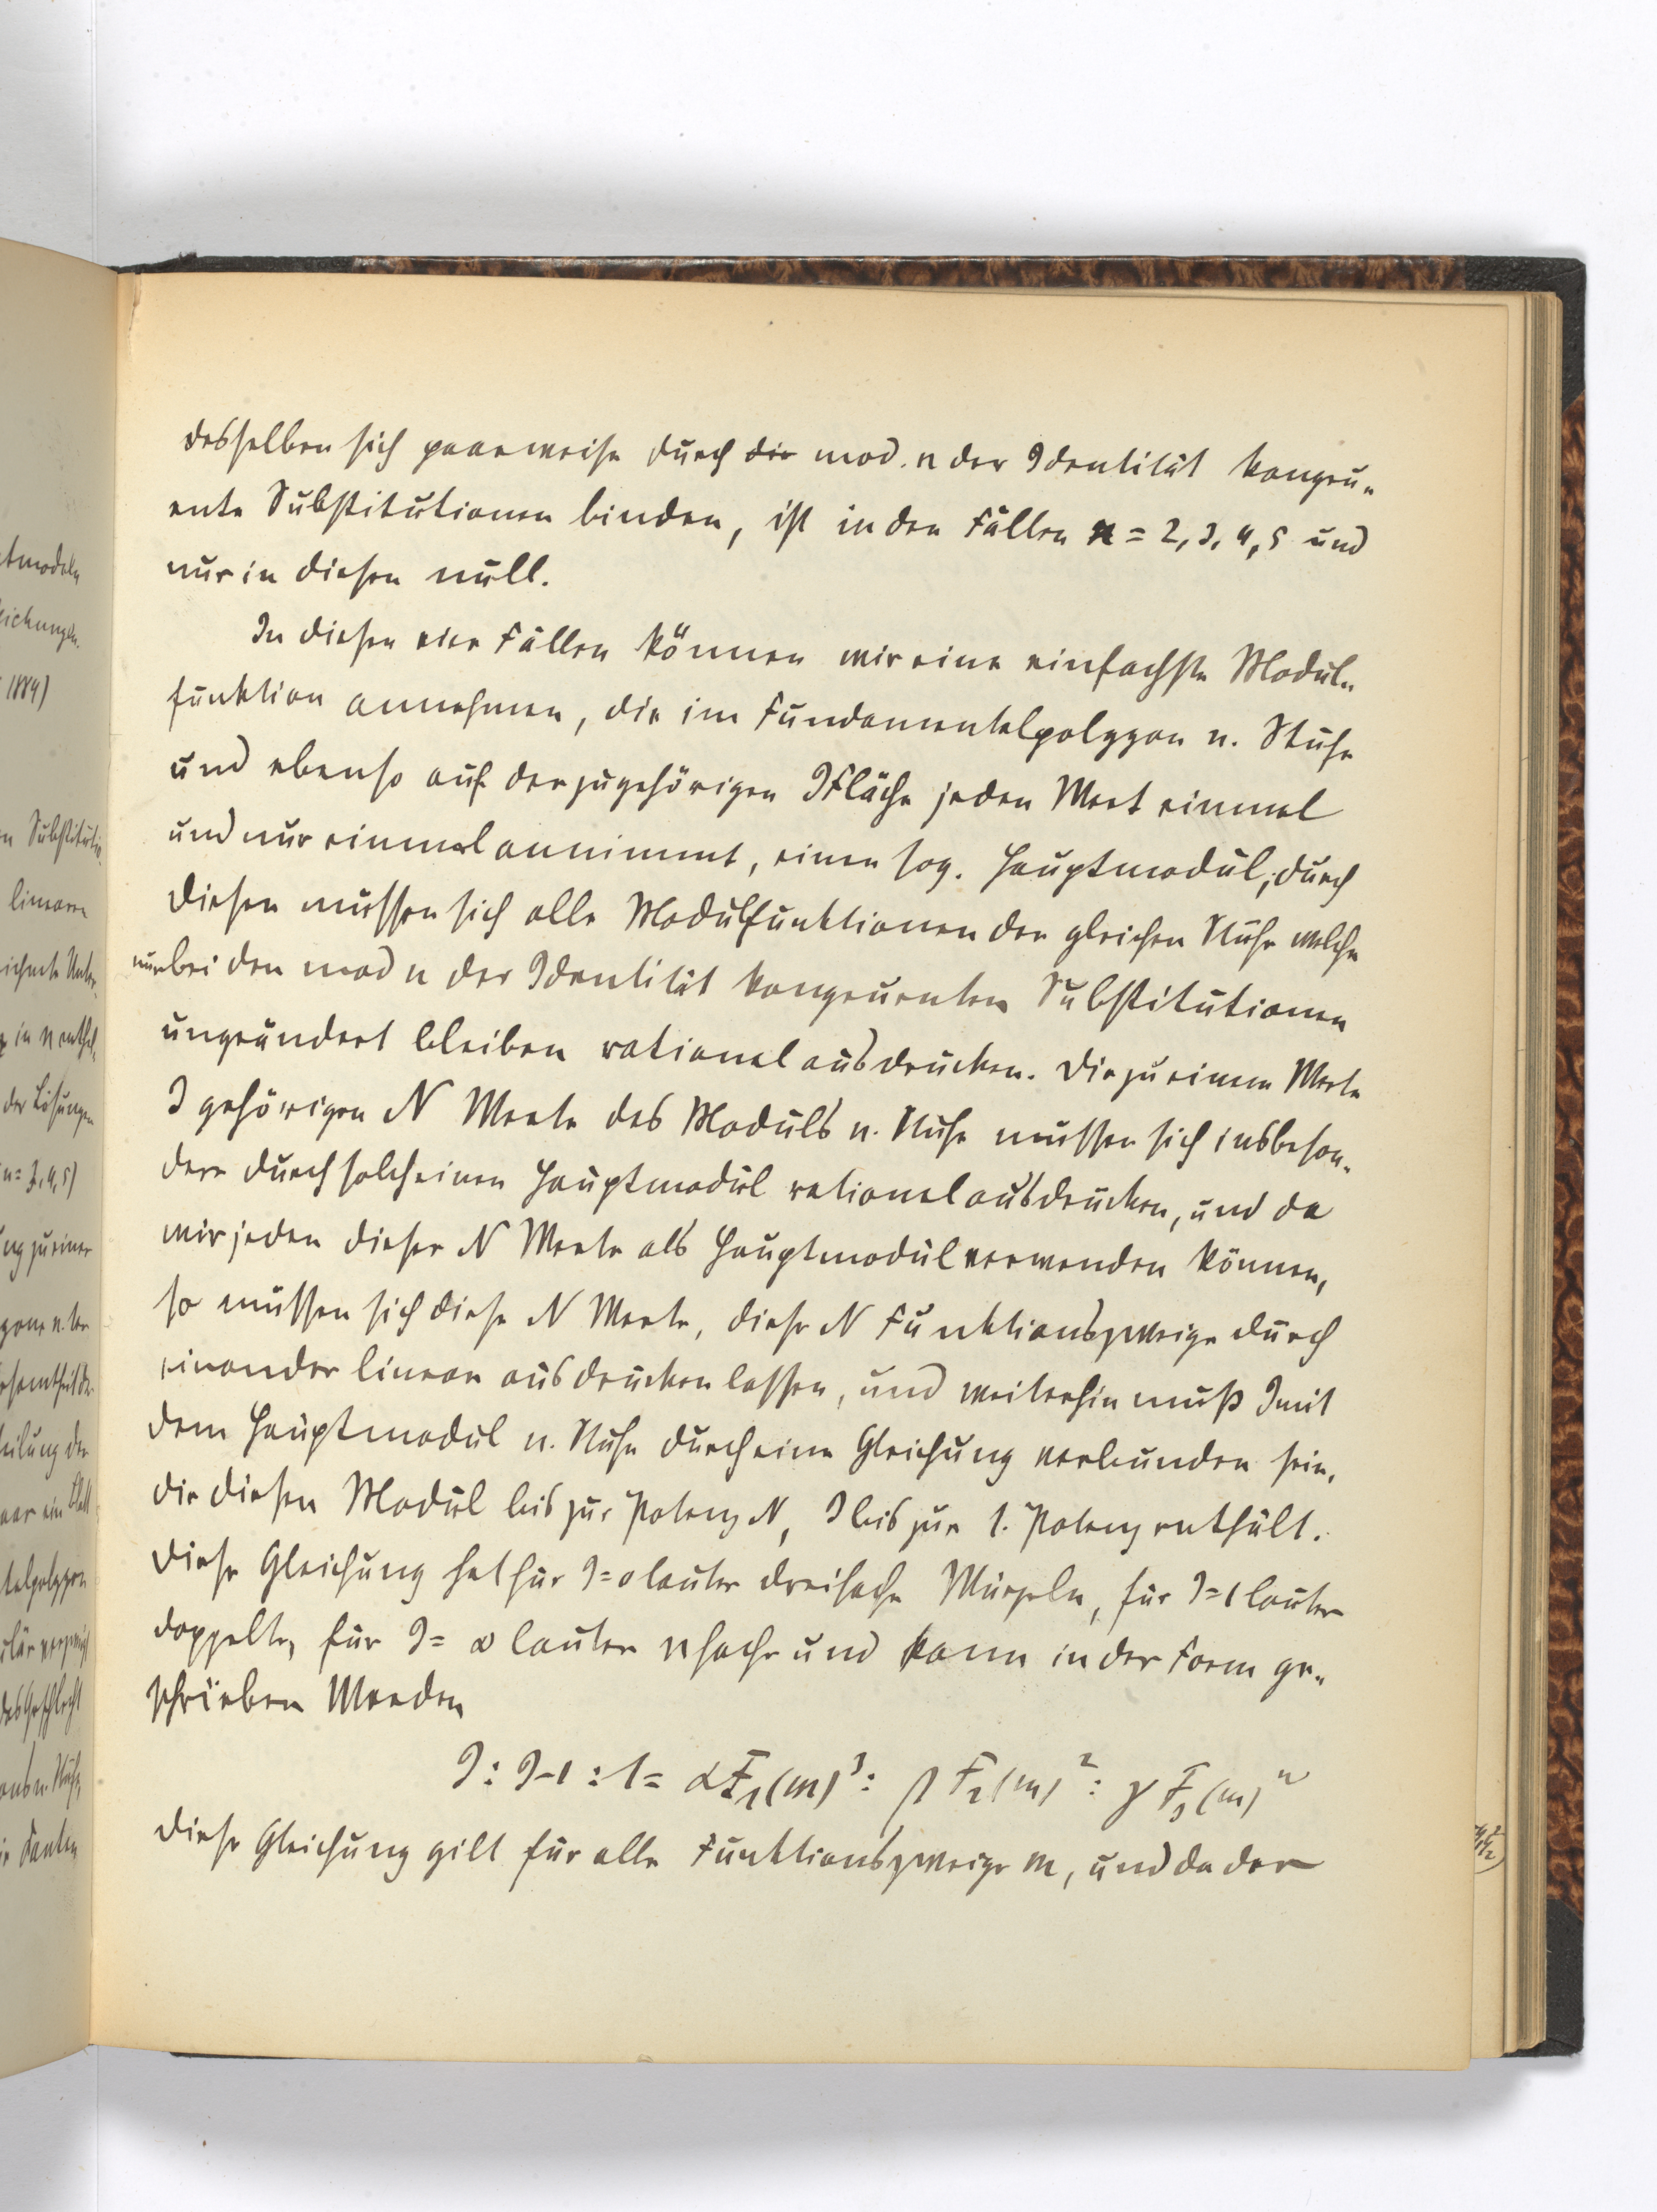 desselben sich paarweise durch die mod. n der Identität kongru-
ente Substitutionen binden, ist in den Fällen n = 2, 3, 4, 5 und
nur in diesen null.
In diesen vier Fällen können wir eine einfachste Modul-
funktion annehmen, die im Fundamentalpolygon n. Stufe
und ebenso auf der zugehörigen JFläche jeden Wert einmal
und nur einmal annimmt, einen sog. Hauptmodul; durch
diesen müssen sich alle Modulfunktionen der gleichen Stufe welche
nur bei den mod n der Identität kongruenten Substitutionen
ungeändert bleiben rational ausdrücken. Die zu einem Werte
J gehörigen N Werte des Moduls n. Stufe müssen sich insbeson-
dere durch solch einen Hauptmodul rational ausdrücken, und da
wir jeden dieser N Werte als Hauptmodul verwenden können,
so müssen sich diese N Werte, diese N Funktionszweige durch
einander linear ausdrücken lassen, und weiterhin muß J mit
dem Hauptmodul n. Stufe durch eine Gleichung verbunden sein,
die diesen Modul bis zur Potenz N, J bis zur 1. Potenz enthält.
Diese Gleichung hat für J=0 lauter dreifache Wurzeln, für J=1 lauter
doppelte, für J= ∞ lauter nfache und kann in der Form ge-
schrieben werden
J : J-1 : 1 = αF₁(m)³ : βF₂(m)² : γF₃(m)ⁿ
Diese Gleichung gilt für alle Funktionszweige m, und da der